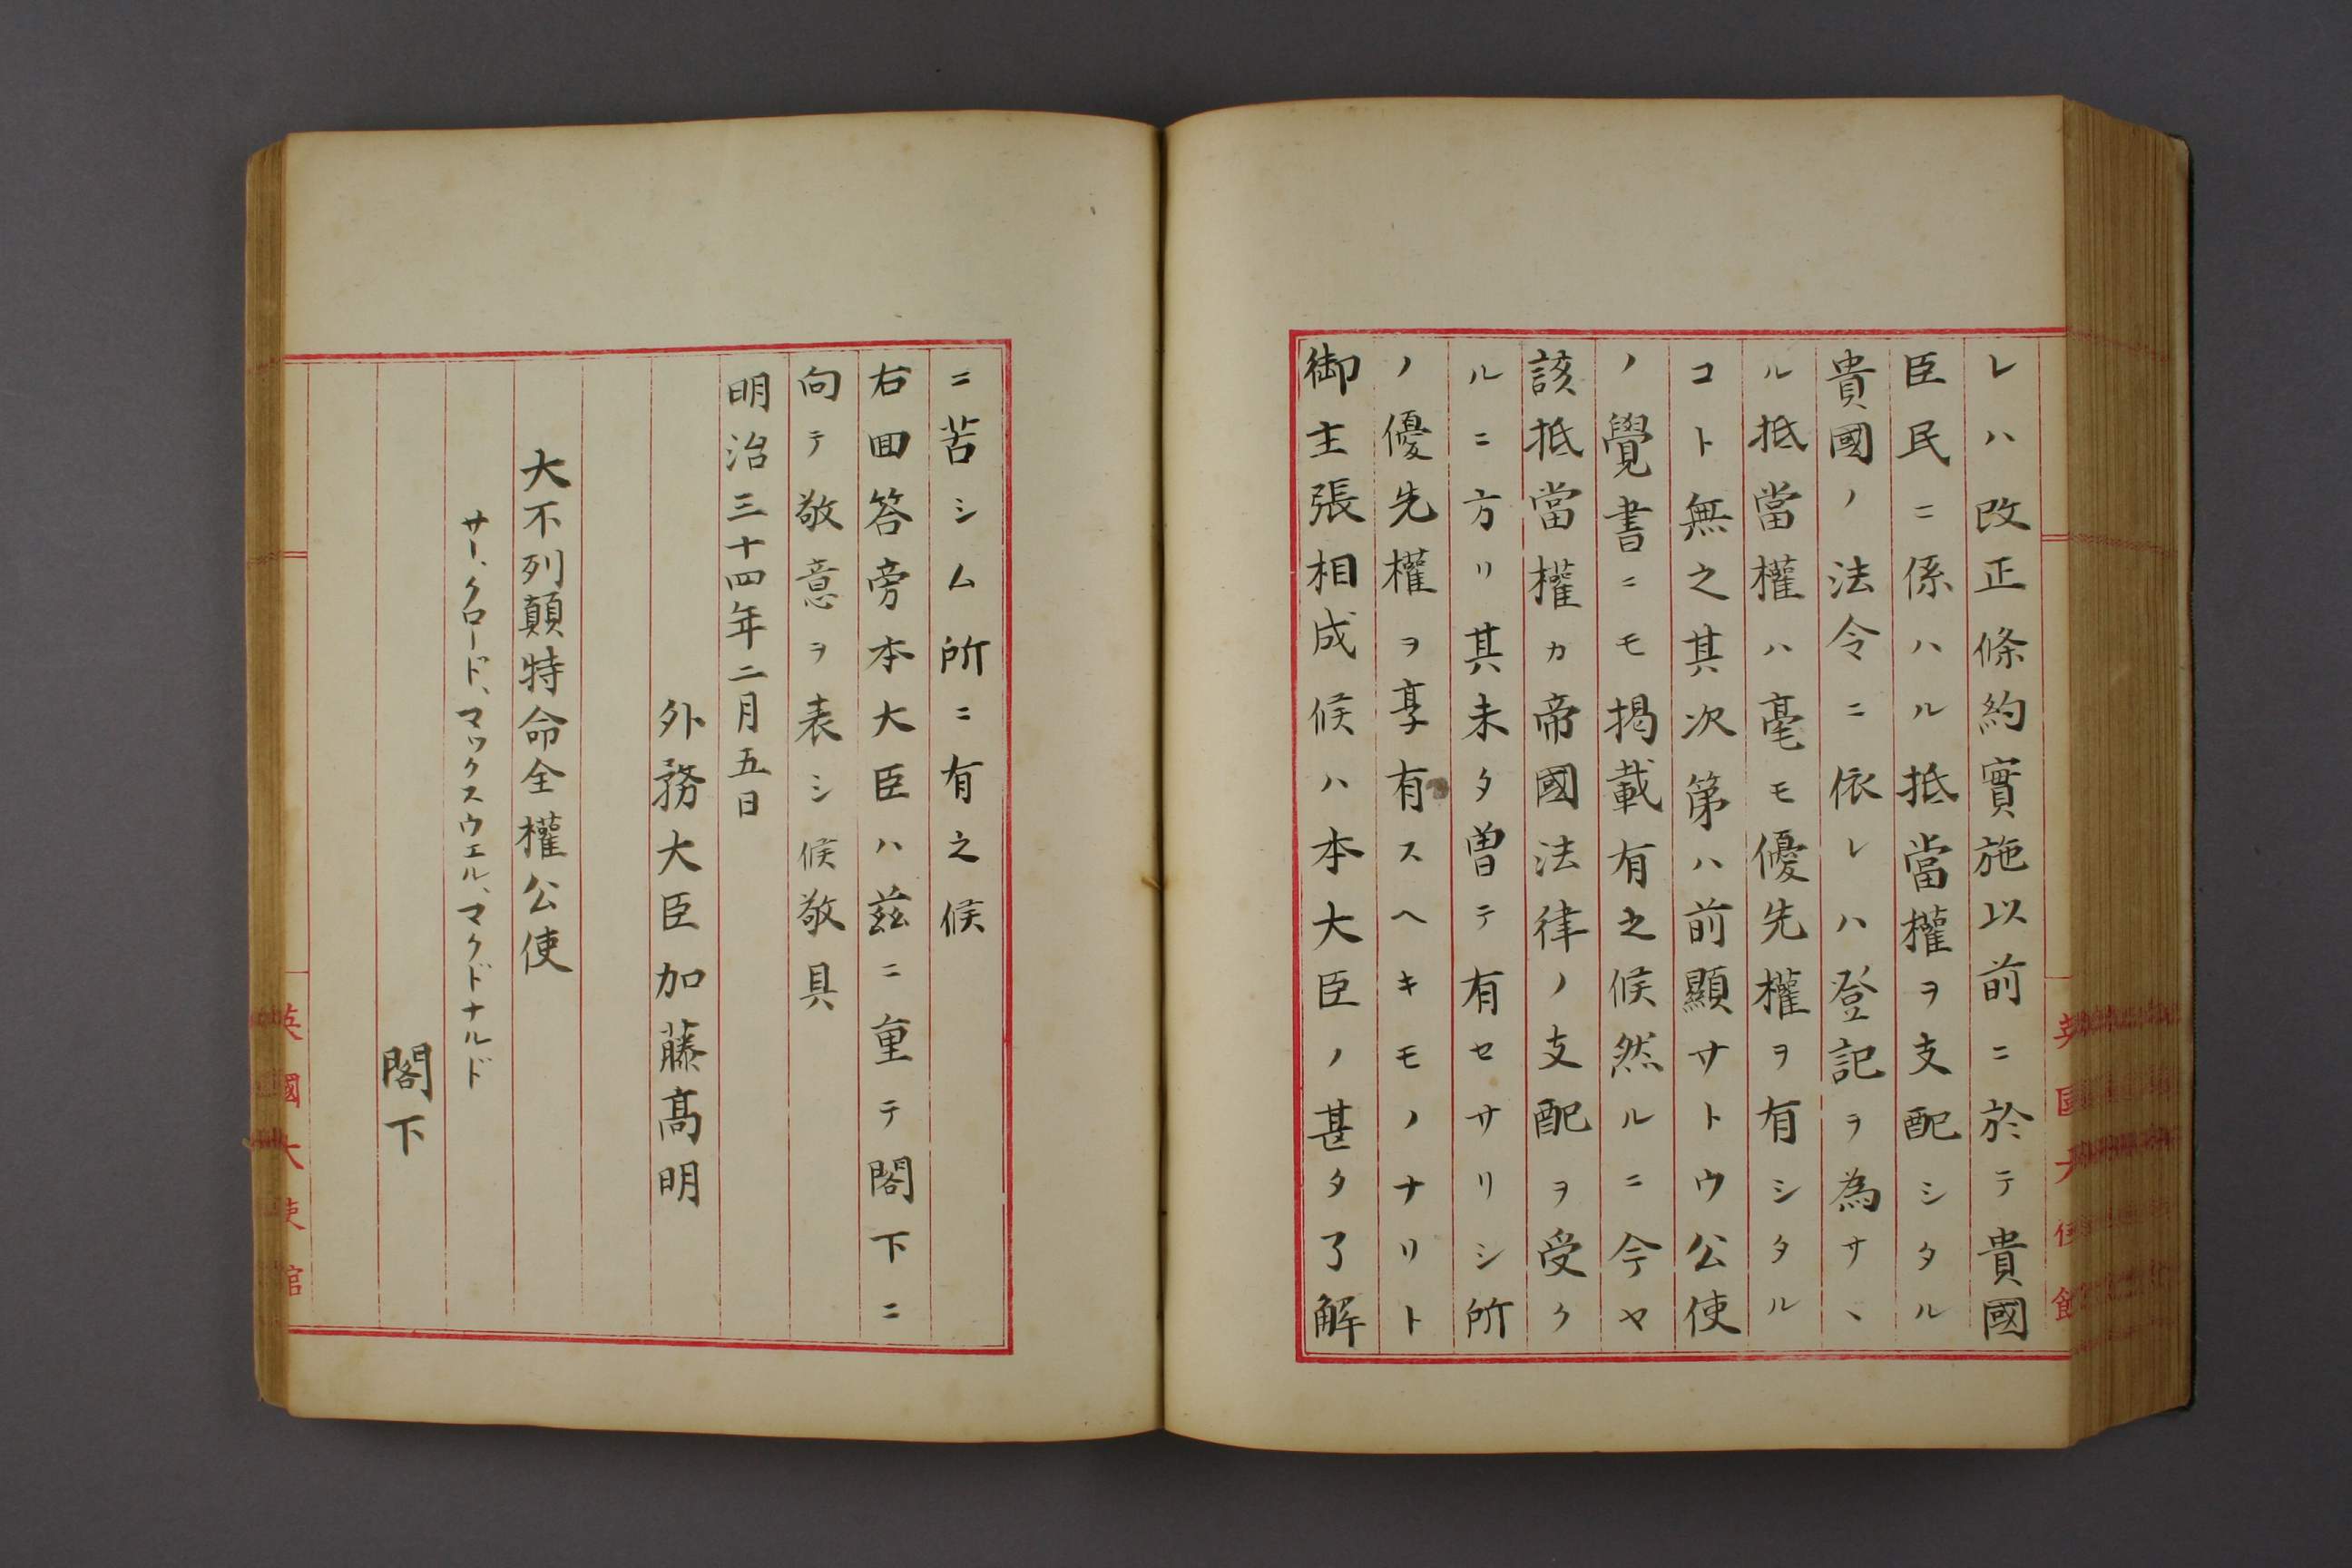 レハ改正條約實施以前ニ於テ貴國
臣民ニ係ハル抵當權ヲ支配シタル
貴國ノ法令ニ依レハ登記ヲ為サヽ
ル抵當權ハ毫モ優先權ヲ有シタル
コト無之其次第ハ前顯サトウ公使
ノ覺書ニモ掲載有之候然ルニ今ヤ
該抵當權カ帝國法律ノ支配ヲ受ク
ルニ方リ其未タ曽テ有セサリシ所
ノ優先權ヲ享有スヘキモノナリト
御主張相成候ハ本大臣ノ甚タ了解
ニ苦シム所ニ有之候
右回答旁本大臣ハ茲ニ重テ閣下ニ
向テ敬意ヲ表シ候敬具
明治三十四年二月五日
外務大臣加藤高明
大不列顛特命全權公使
サー、クロード、マックスウェル、マクドナルド
閣下
英國大使館